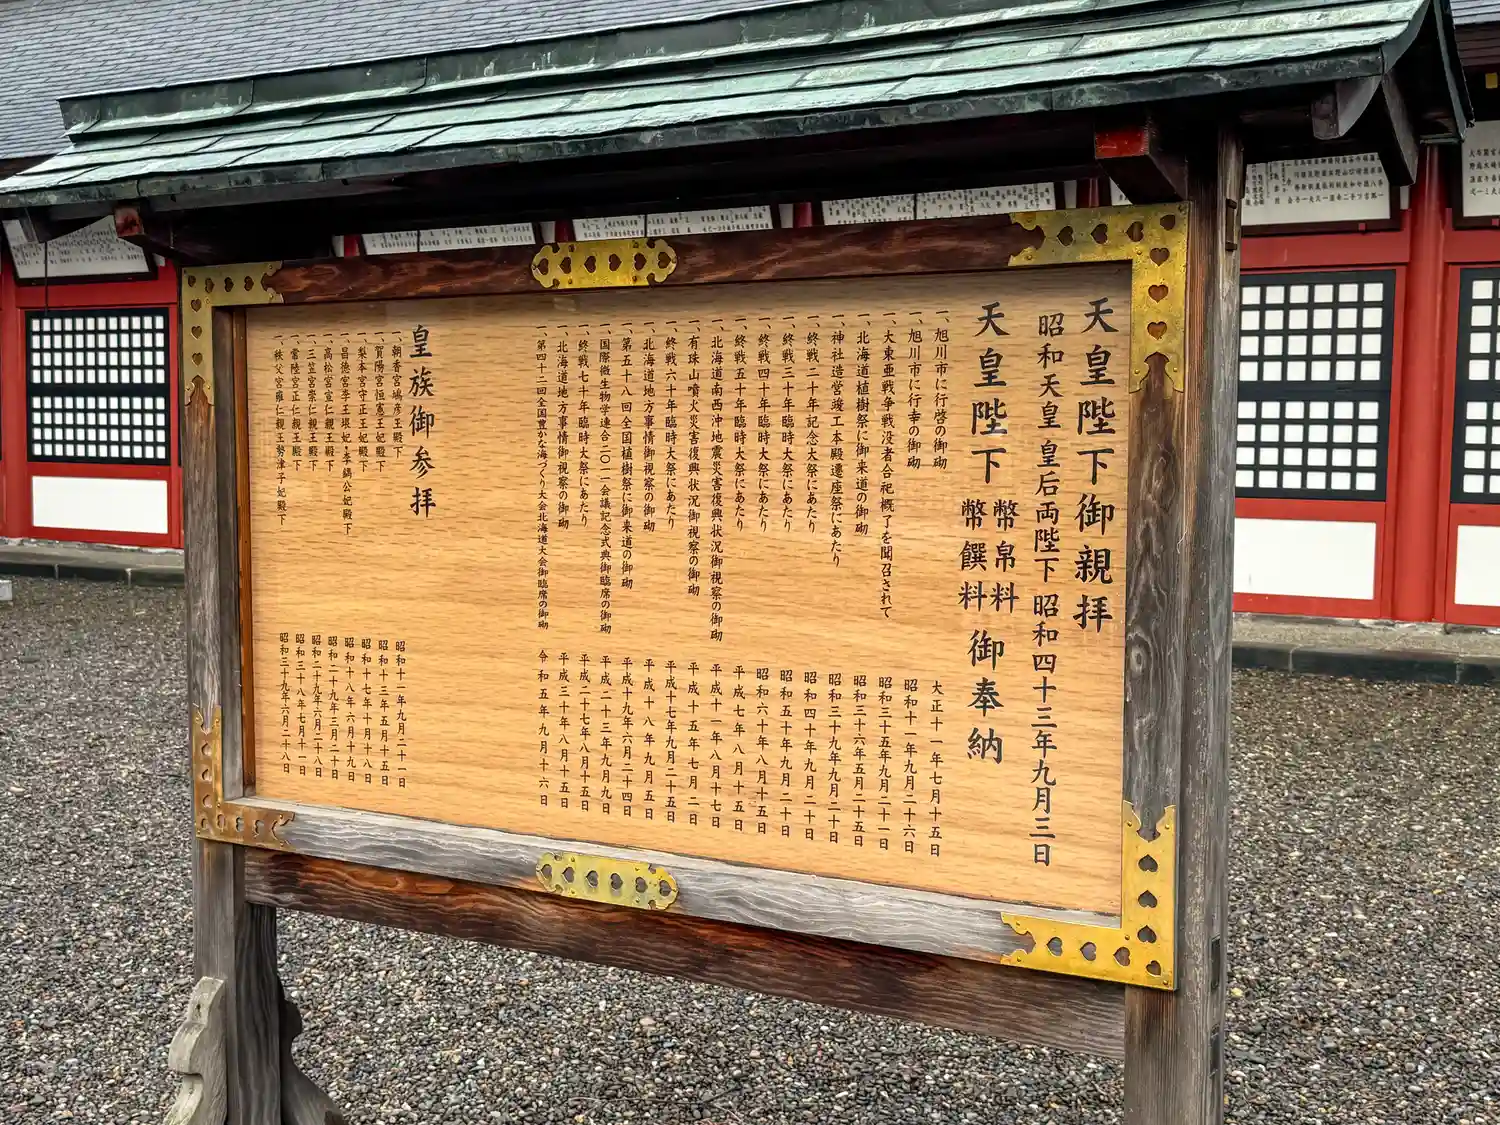 天皇陛下御親拝
昭和天皇 皇后両陛下 昭和四十三年九月三日
天皇陛下 幣帛料 幣饌料 御奉納
一、旭川市に行啓の御砌 大正十一年七月十五日
一、旭川市に行幸の御砌 昭和十一年九月二十六日
一、大東亜戦争戦没者合祀概了を聞召されて 昭和三十五年九月二十一日
一、北海道植樹祭に御来道の御砌 昭和三十六年五月二十五日
一、神社造営竣工本殿遷座祭にあたり 昭和三十九年九月二十日
一、終戦二十年記念大祭にあたり 昭和四十年九月二十日
一、終戦三十年臨時大祭にあたり 昭和五十年九月二十日
一、終戦四十年臨時大祭にあたり 昭和六十年八月十五日
一、終戦五十年臨時大祭にあたり 平成七年八月十五日
一、北海道南西沖地震災害復興状況御視察の御砌 平成十一年八月十七日
一、有珠山噴火災害復興状況御視察の御砌 平成十五年七月二日
一、終戦六十年臨時大祭にあたり 平成十七年九月二十五日
一、北海道地方事情御視察の御砌 平成十八年九月五日
一、第五十八回全国植樹祭に御来道の御砌 平成十九年六月二十四日
一、国際微生物学連合二〇一一会議記念式典御臨席の御砌 平成二十三年九月九日
一、終戦七十年臨時大祭にあたり 平成二十七年八月十五日
一、北海道地方事情御視察の御砌 平成三十年八月十五日
一、第四十二回全国豊かな海づくり大会北海道大会御臨席の御砌 令和五年九月十六日
皇族御参拝
一、朝香宮鳩彦王殿下 昭和十一年九月二十一日
一、賀陽宮恒憲王妃殿下 昭和十三年五月十五日
一、梨本宮守正王妃殿下 昭和十七年十月十八日
一、昌徳宮李王垠妃・李鍝公妃殿下 昭和十八年六月十九日
一、高松宮宣仁親王殿下 昭和二十九年三月二十日
一、三笠宮崇仁親王殿下 昭和二十九年六月二十八日
一、常陸宮正仁親王殿下 昭和三十八年七月十一日
一、秩父宮雍仁親王勢津子妃殿下 昭和三十九年六月二十八日